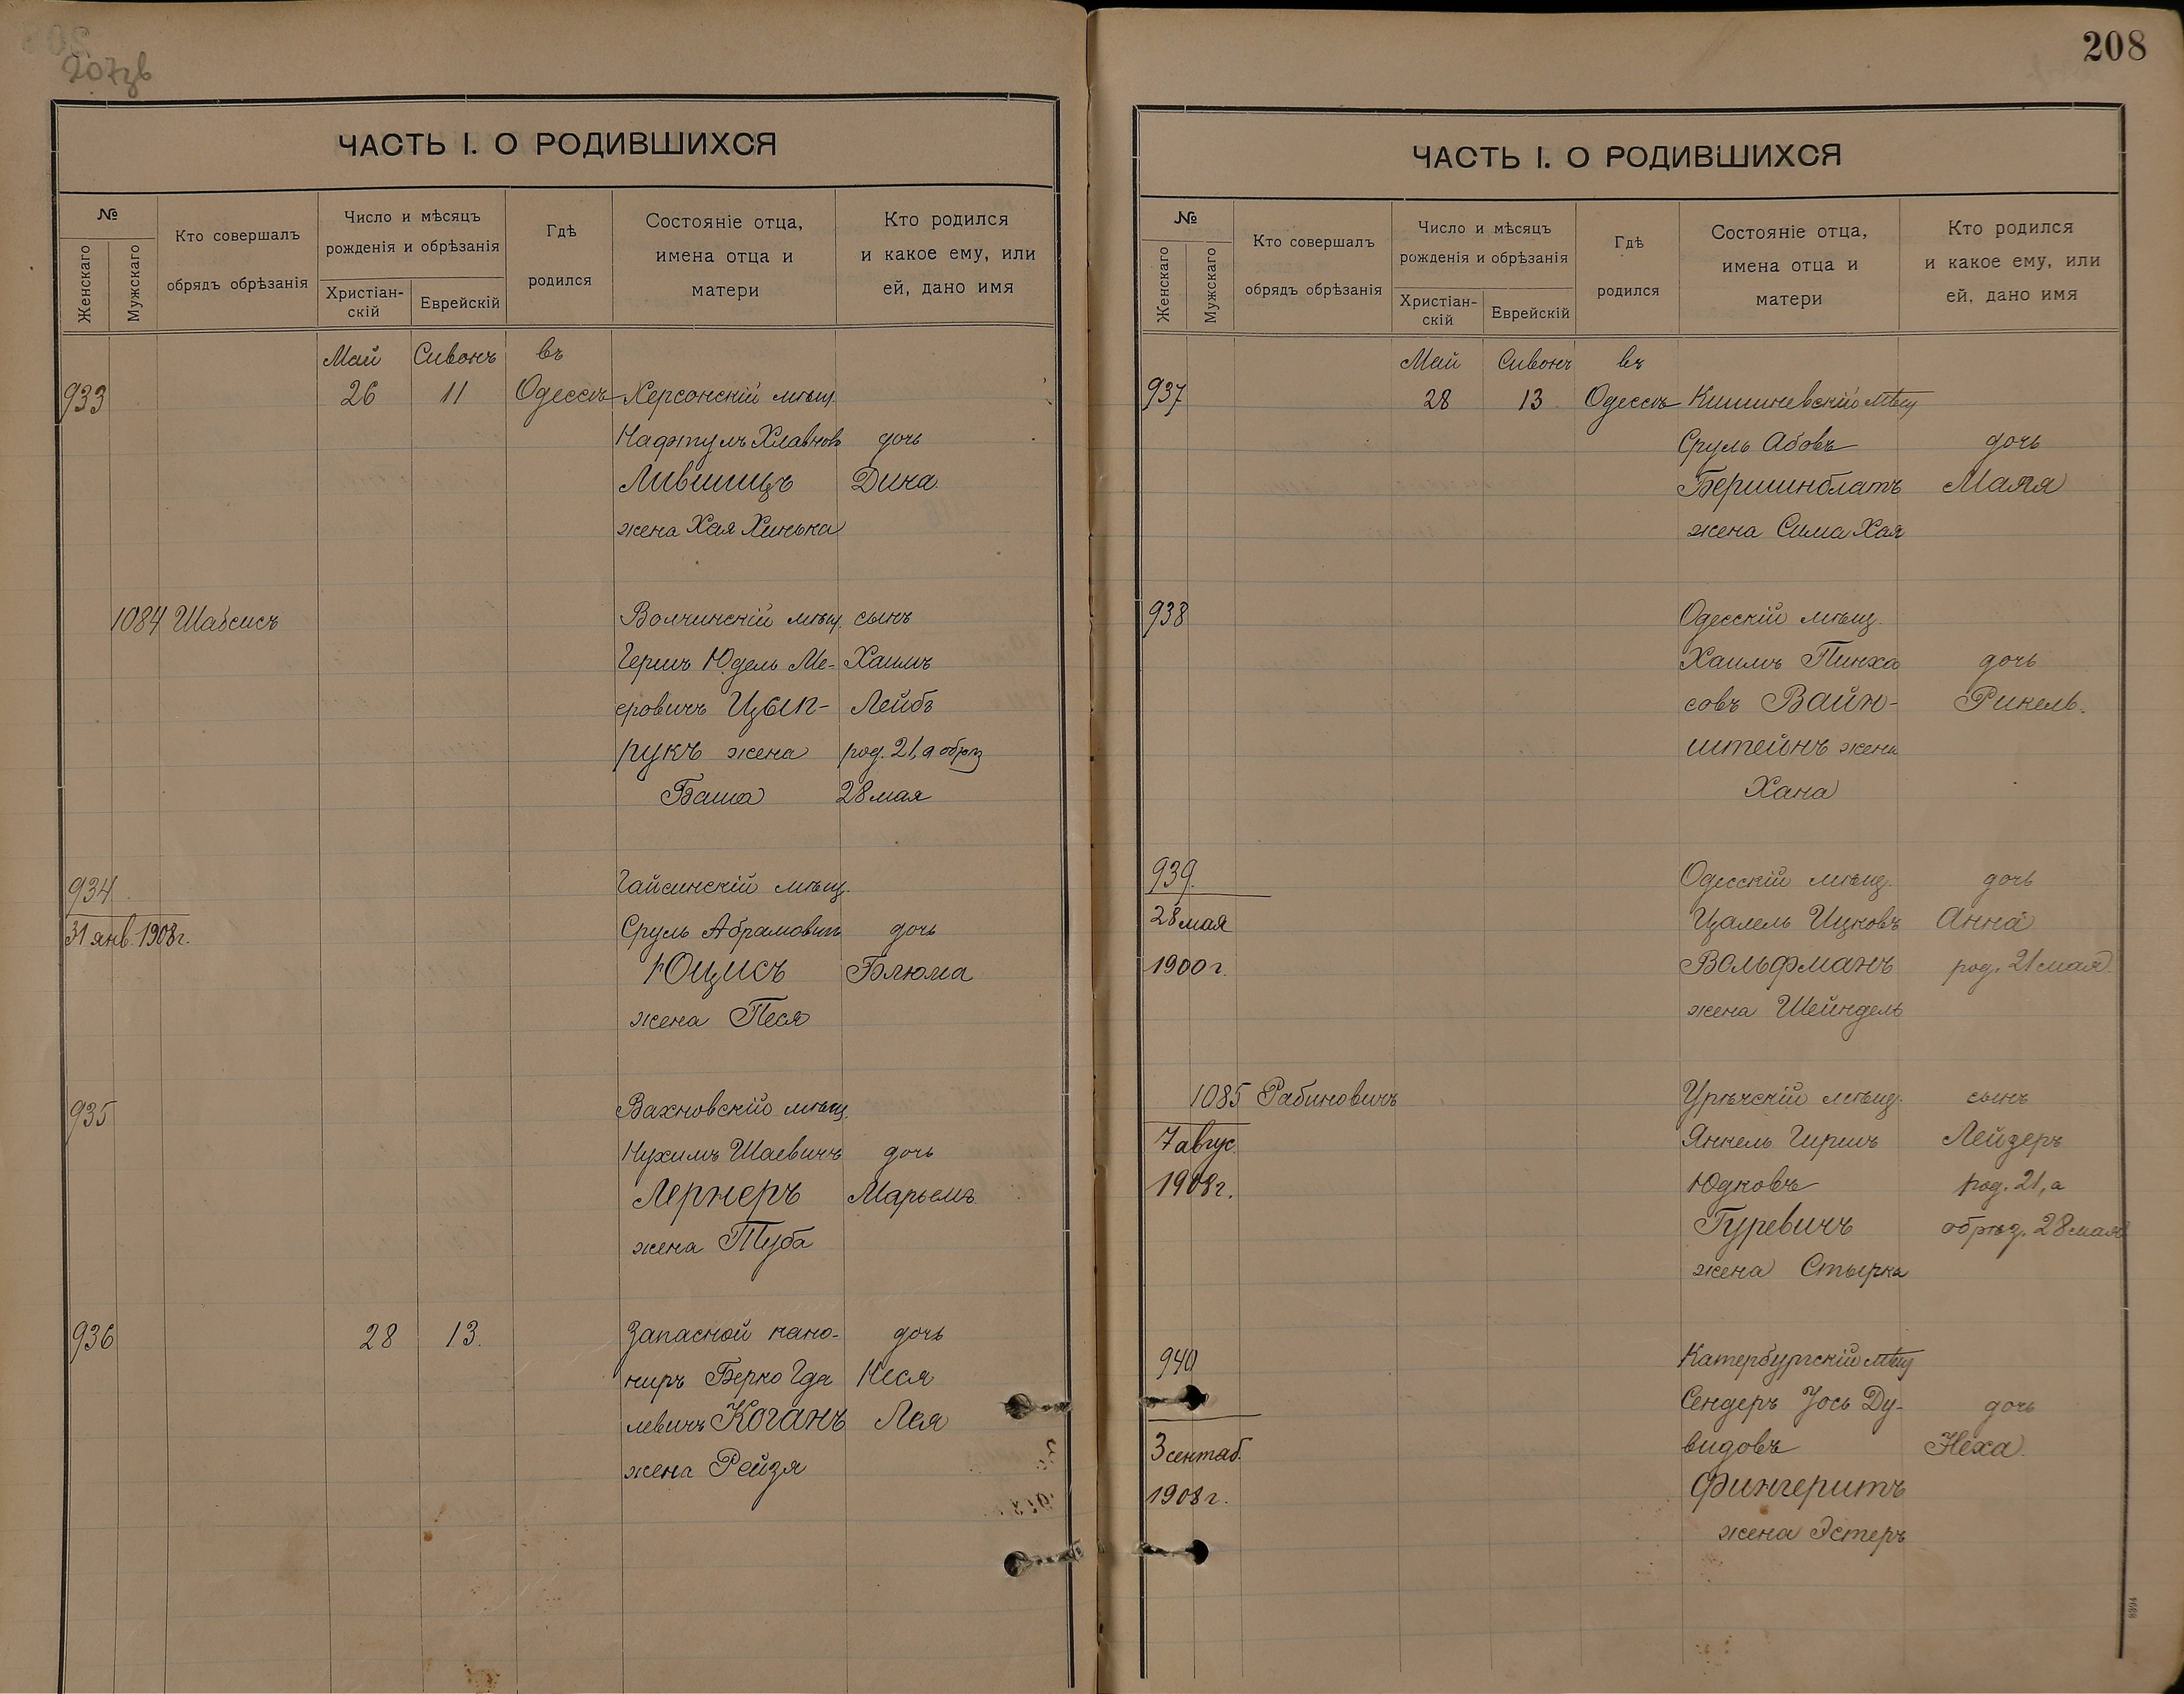 207зв
ЧАСТЬ I. О РОДИВШИХСЯ
№
Женскаго
Мужскаго
Кто совершалъ
обрядъ обрѣзанія
Число и мѣсяцъ
рожденія и обрѣзанія
Христіан-
скій
Еврейскій
Гдѣ
родился
Состояніе отца,
имена отца и
матери
Кто родился
и какое ему, или
ей, дано имя
Май Сивонъ въ
933 26 11 Одессѣ Херсонскій мѣщ.
Нафтулъ Хлавновъ дочь
Лившицъ Дина
жена Хая Хинька
1084 Шабсисъ Волчинскій мѣщ. сынъ
Гершъ Юдель Ме- Хаимъ
еровичъ Цып- Лейбъ
рукъ жена род. 21, а обрѣз
Баша 28 мая
934 Гайсинскій мѣщ.
31 янв. 1908 г. Сруль Абрамовичъ дочь
Юцисъ Блюма
жена Песя
935 Вахновскій мѣщ.
Нухимъ Шаевичъ дочь
Лернеръ Марьемъ
жена Туба
936 28 13. Запасной кано- дочь
ниръ Берко Гда Неся
левичъ Коганъ Лея
жена Рейзя
208
ЧАСТЬ I. О РОДИВШИХСЯ
№
Женскаго
Мужскаго
Кто совершалъ
обрядъ обрѣзанія
Число и мѣсяцъ
рожденія и обрѣзанія
Христіан-
скій
Еврейскій
Гдѣ
родился
Состояніе отца,
имена отца и
матери
Кто родился
и какое ему, или
ей, дано имя
Май Сивонъ въ
937 28 13 Одессѣ Кишиневскій мѣщ
Сруль Абовъ дочь
Бершинблатъ Маля
жена Сима Хая
938 Одесскій мѣщ.
Хаимъ Пинха дочь
совъ Вайн- Рикель.
штейнъ жена
Хана
939. Одесскій мѣщ. дочь
28 мая Цалель Ицковъ Анна
1900 г. Вольфманъ род. 21 мая
жена Шейндель
1085 Рабиновичъ Урѣчскій мѣщ. сынъ
7 авгус. Янкель Гиршъ Лейзеръ
1908 г. Юдковъ род. 21, а
Гуревичъ обрѣз. 28 мая
жена Стырка
940 Катербургскій мѣщ
Сендеръ Іось Ду- дочь
3 сентяб. видовъ Неха.
1908 г. Фингеритъ
жена Эстеръ